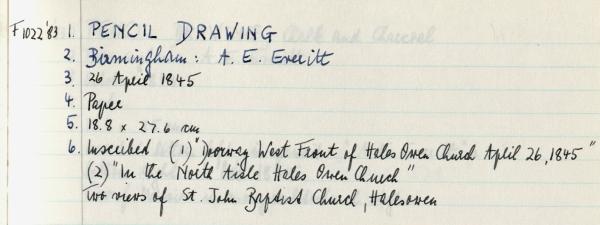 F1022'83 1. PENCIL DRAWING
2. Birmingham: A. E. Everitt
3. 26 April 1845
4. Paper
5. 18.8 x 27.6 cm
6. Inscribed (1) "Doorway West Front of Hales Owen Church April 26, 1845"
(2) "In the North Aisle Hales Owen Church"
Two views of St. John Baptist Church, Halesowen